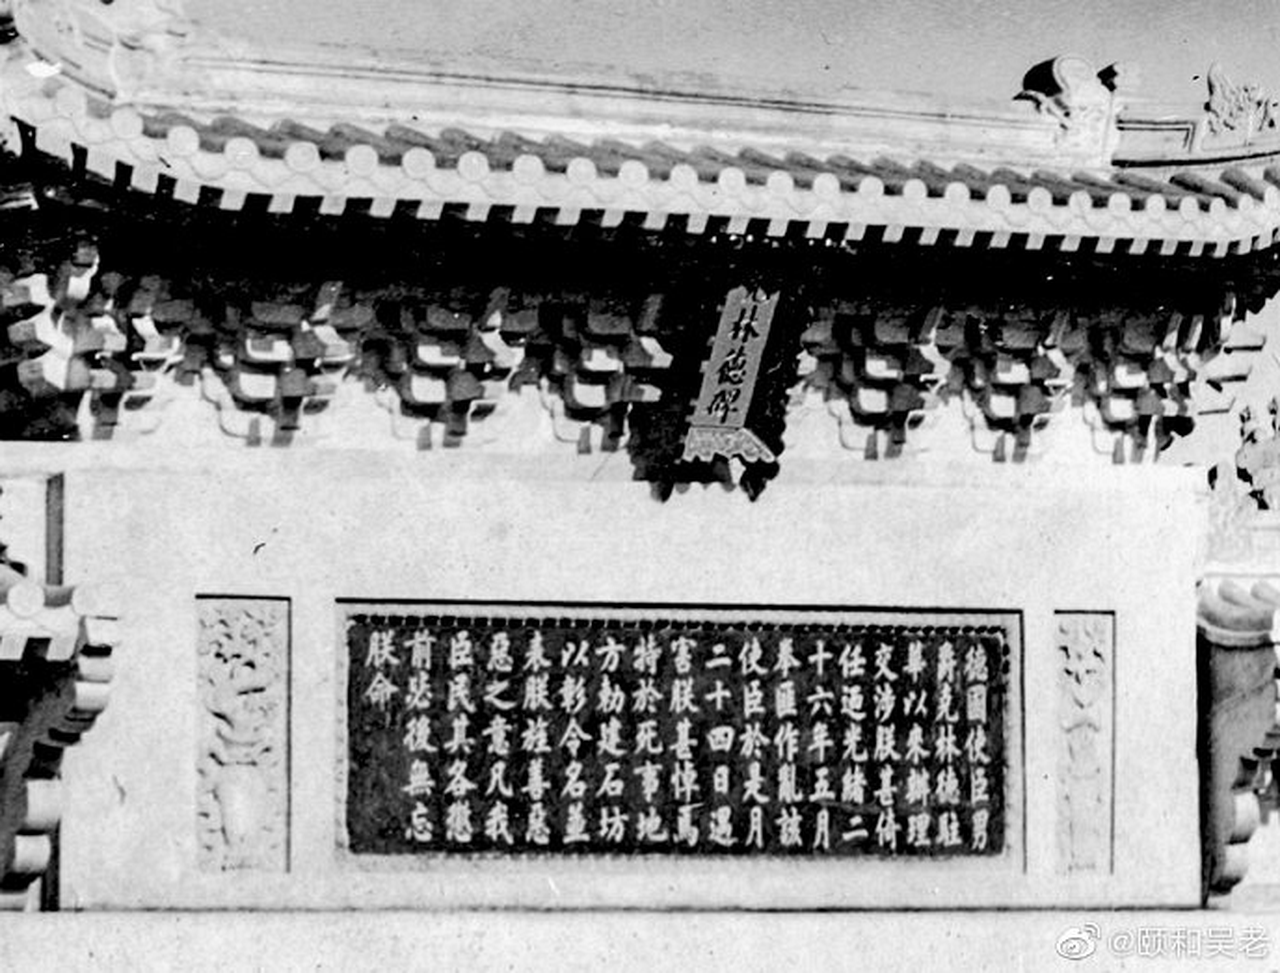 克林德碑
德國使臣男
爵克林德駐
華以來辦理
交涉朕甚倚
任迺光緒二
十六年五月
拳匪作亂該
使臣於是月
二十四日遇
害朕甚悼焉
特於死事地
方勅建石坊
以彰令名並
表朕旌善惡
惡之意凡我
臣民其各懲
前毖後無忘
朕命
@颐和吴老